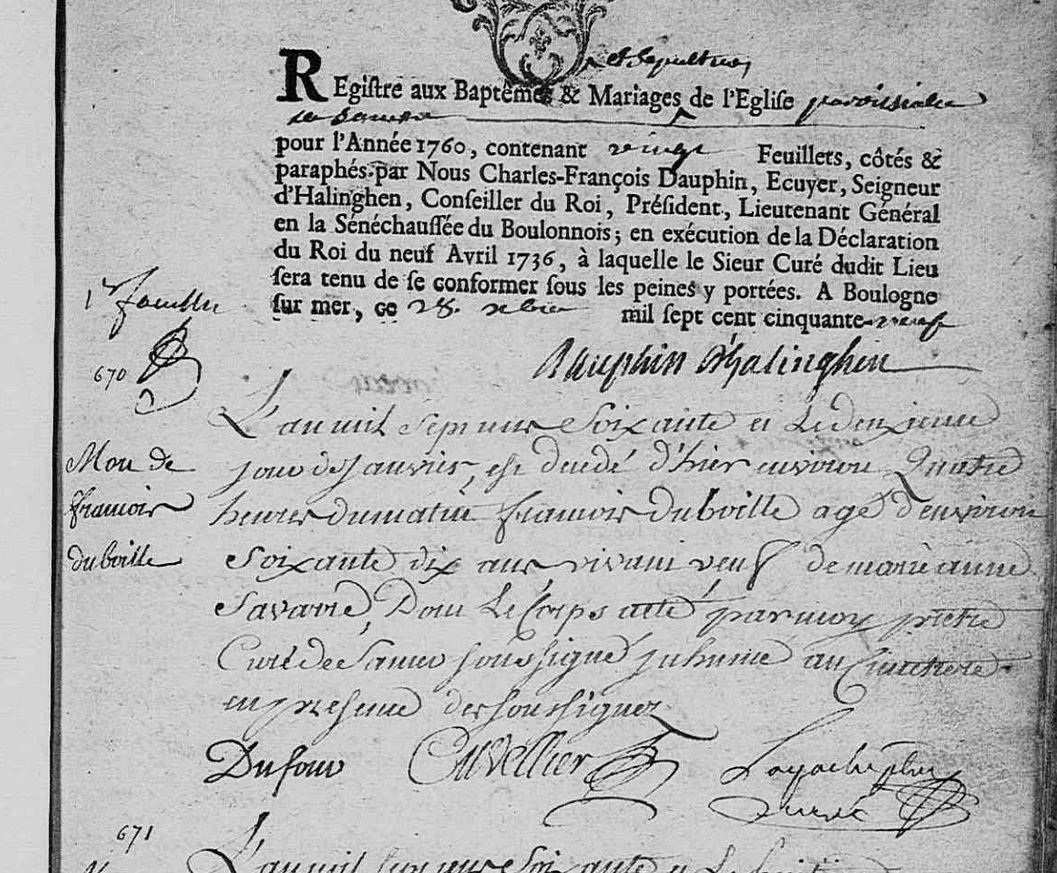 et Sepultures
REgistre aux Baptêmes & Mariages de l'Eglise paroissiale
de Samer
pour l'Année 1760, contenant vingt Feuillets, côtés &
paraphés par Nous Charles-François Dauphin, Ecuyer, Seigneur
d'Halinghen, Conseiller du Roi, Président, Lieutenant Général
en la Sénéchaussée du Boulonnois; en exécution de la Déclaration
du Roi du neuf Avril 1736, à laquelle le Sieur Curé dudit Lieu
sera tenu de se conformer sous les peines y portées. A Boulogne
sur mer, ce 28. xbre mil sept cent cinquante-neuf
Dauphin d'Halinghen
1er feuillet
670
L'an mil sept cens Soixante et Le deuxieme
jour de Janvier, est decedé d'hier environ Quatre
heures du matin francois Duboille agé d'environ
Soixante dix ans vivant veuf de marie anne
Savarie, Dont Le Corps a eté par moy prètre
Curé de Samer soussigné inhumé au Cimetiere
en presence des soussignez
Mort de
francois
duboille
Dufour Cuvellier
curé
671
L'an mil sept cens Soixante et Le huit